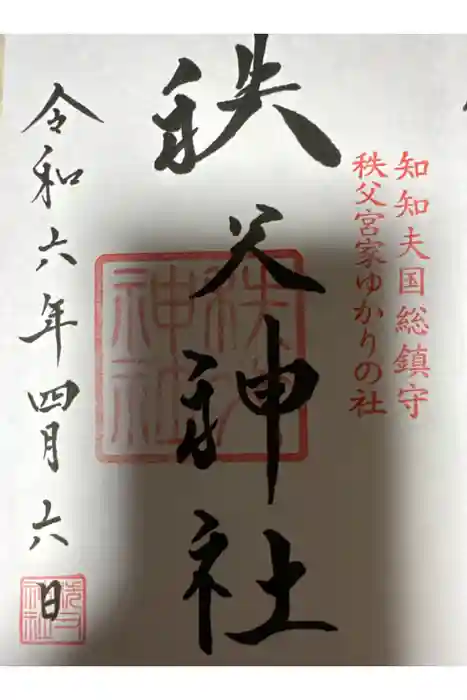 知知夫国総鎮守
秩父宮家ゆかりの社
秩父神社
秩父
神社
令和六年四月六日